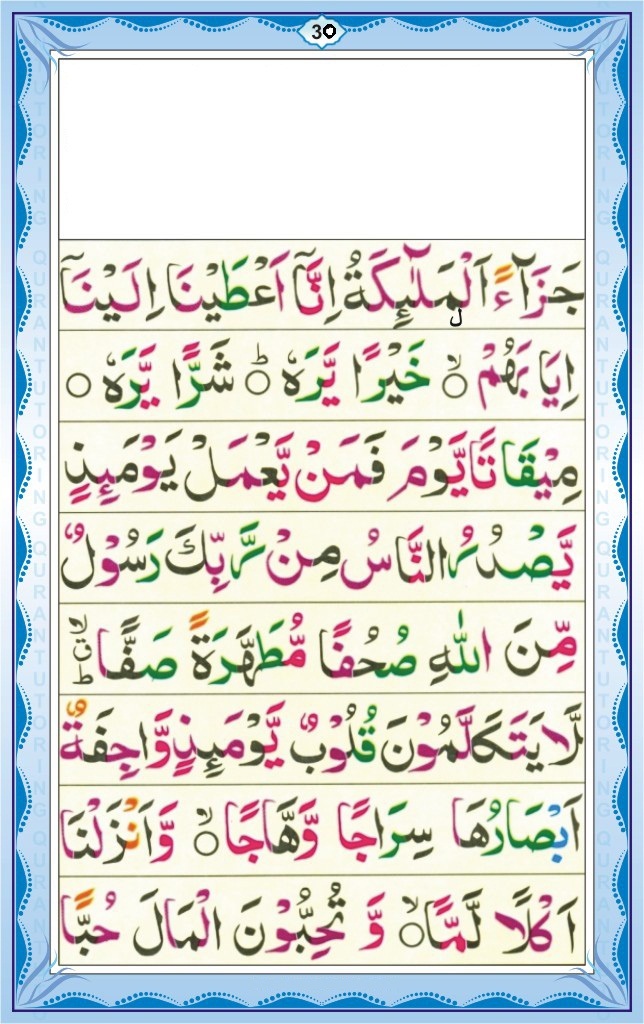 30
جَزَآءً اَلْمَلٰٓئِكَةُ اِنَّاۤ اَعْطَيْنَا اِلَيْنَاۤ
ل
اِيَا بَهُمْ ۙ○ خَيْرًا يَّرَهٗ ؕ○ شَرًّا يَّرَهٗ ○
مِيْقَا تًا يَّوْمَ فَمَنْ يَّعْمَلْ يَوْمَئِذٍ
يَّصْدُرُ النَّاسُ مِنْ رَّبِّكَ رَسُوْلٌ
مِّنَ اللّٰهِ صُحُفًا مُّطَهَّرَةً صَفًّا ۙ ق ط
لَّا يَتَكَلَّمُوْنَ قُلُوْبٌ يَّوْمَئِذٍ وَّاجِفَةٌ
اَبْصَارُهَا سِرَاجًا وَّهَّاجًا ۙ○ وَّاَنْزَلْنَا
اَكْلًا لَّمًّا ۙ○ وَّ تُحِبُّوْنَ الْمَالَ حُبًّا
QURAN TUTORING QURAN TUTORING QURAN